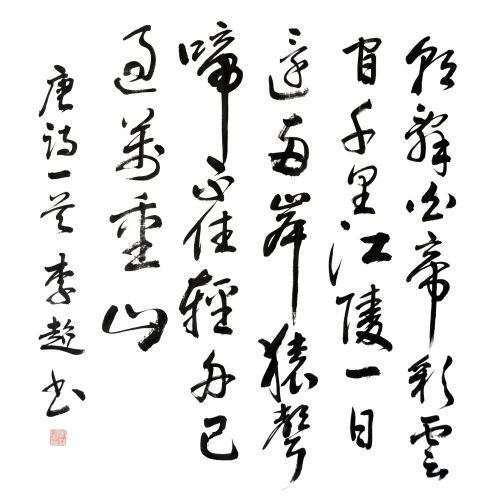 朝辭白帝彩雲
間千里江陵一日
還兩岸猿聲
啼不住輕舟已
過萬重山
唐詩一首 李超書